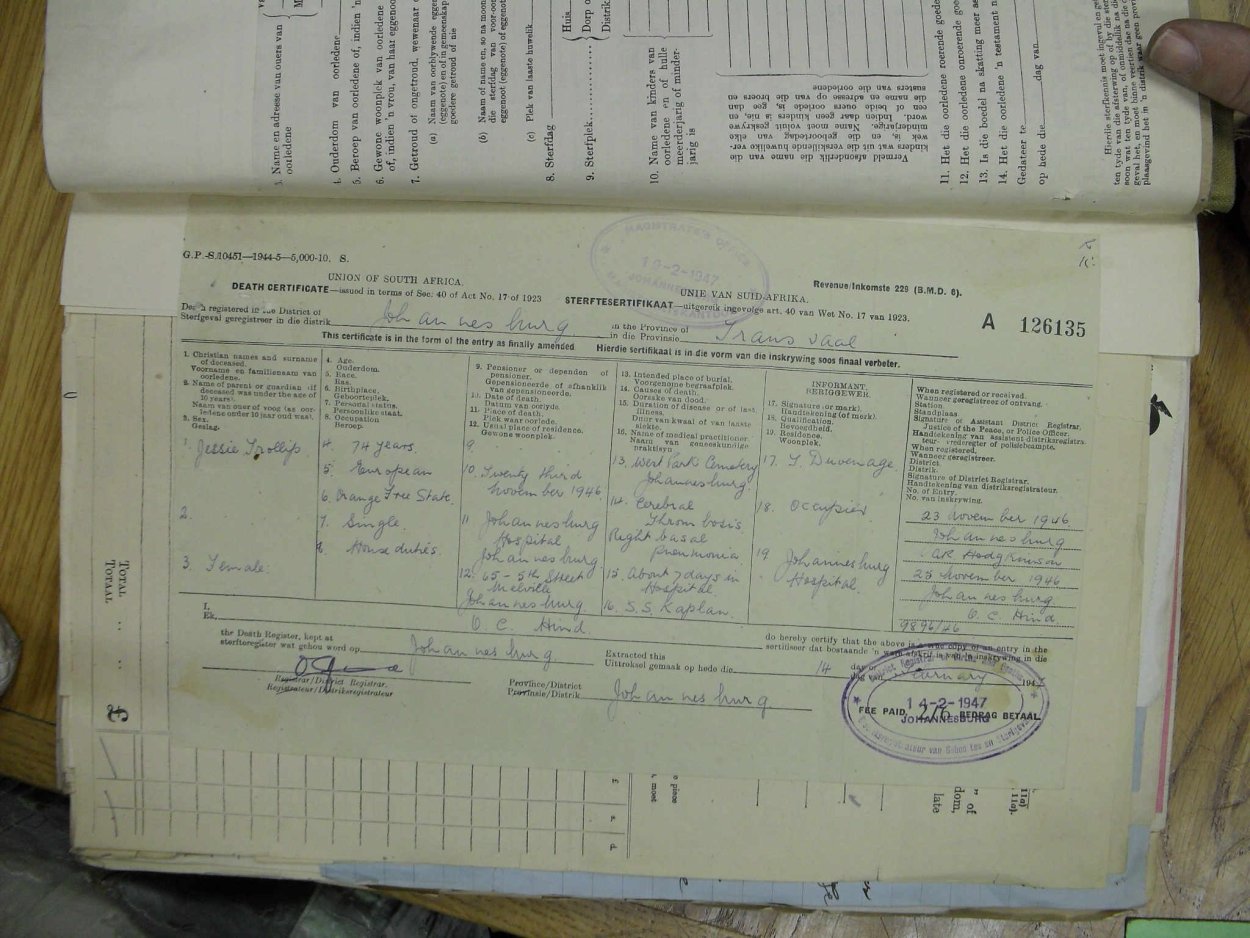 3. Name en adresse van ouers van
oorledene
4. Ouderdom van oorledene
5. Beroep van oorledene of, indien 'n
6. Gewone woonplek van oorledene
of, indien 'n vrou, van haar eggenoot
7. Getroud of ongetroud, wewenaar o
(a) Naam van oorblywende eggen
(eggenote) en of in gemeenskap
goedere getroud of nie
(b) Naam of name en, so na moon
die sterfdag van voor-oor
eggenoot (eggenote) of eggenote
(c) Plek van laaste huwelik
8. Sterfdag
9. Sterfplek
Huis
Dorp o
Distrik
10. Name van kinders van
oorledene en of hulle
meerderjarig of minder-
jarig is
Vermeld afsonderlik die name van die
kinders wat uit die verskillende huwelike ver-
wek is, en die geboortedag van elke
minderjarige. Name moet voluit geskrywe
word. Indien daar geen kinders is nie, en
een of beide ouers oorlede is, gee dan
die name en adresse van die broers en
susters van die oorledene
11. Het die oorledene roerende goed
12. Het die oorledene onroerende goe
13. Is die boedel na skatting meer as
14. Het die oorledene 'n testament n
Gedateer te
op hede die dag van
G.P.-S.10451—1944-5—5,000-10. S.
MAGISTRATE'S OFFICE
19-2-1947
JOHANNESBURG
UNION OF SOUTH AFRICA.
DEATH CERTIFICATE—issued in terms of Sec. 40 of Act No. 17 of 1923
UNIE VAN SUID-AFRIKA.
STERFTESERTIFIKAAT—uitgereik ingevolge art. 40 van Wet No. 17 van 1923.
Revenue/Inkomste 229 (B.M.D. 6).
A 126135
Death registered in the District of
Sterfgeval geregistreer in die distrik
Johannesburg
in the Province of
in die Provinsie
Transvaal
This certificate is in the form of the entry as finally amended
Hierdie sertifikaat is in die vorm van die inskrywing soos finaal verbeter.
1. Christian names and surname
of deceased.
Voorname en familienaam van
oorledene.
2. Name of parent or guardian (if
deceased was under the age of
10 years).
Naam van ouer of voog (as oor-
ledene onder 10 jaar oud was).
3. Sex.
Geslag.
4. Age.
Ouderdom.
5. Race.
Ras.
6. Birthplace.
Geboorteplek.
7. Personal status.
Persoonlike staat.
8. Occupation
Beroep.
9. Pensioner or dependent of
pensioner.
Gepensioeneerde of afhanklik
van gepensioeneerde.
10. Date of death.
Datum van oorlyde.
11. Place of death.
Plek waar oorlede.
12. Usual place of residence.
Gewone woonplek.
13. Intended place of burial.
Voorgenome begraafplek.
14. Causes of death.
Oorsake van dood.
15. Duration of disease or of last
illness.
Duur van kwaal of van laaste
siekte.
16. Name of medical practitioner.
Naam van geneeskundige
praktisyn.
INFORMANT.
BERIGGEWER.
17. Signature (or mark).
Handtekening (of merk).
18. Qualification.
Bevoegdheid.
19. Residence.
Woonplek.
When registered or received.
Wanneer geregistreer of ontvang.
Station.
Standplaas.
Signature of Assistant District Registrar,
Justice of the Peace, or Police Officer.
Handtekening van assistent-distriksregistra-
teur, vrederegter of polisiebeampte.
When registered.
Wanneer geregistreer.
District.
Distrik.
Signature of District Registrar.
Handtekening van distriksregistrateur.
No. of Entry.
No. van inskrywing.
1. Jessie Trollip.
2.
3. Female.
4. 74 years.
5. European
6. Orange Free State.
7. Single.
8. House duties.
9.
10. Twenty third
November 1946
11. Johannesburg
Hospital
Johannesburg
12. 65 - 5th Street
Melville
Johannesburg
13. West Park Cemetery
Johannesburg
14. Cerebral
Thrombosis
Right basal
pneumonia
15. About 7 days in
Hospital.
16. S.S. Kaplan.
17. J. Duvenage
18. Occupier
19 Johannesburg
Hospital.
23 November 1946
Johannesburg
25 November 1946
Johannesburg
O. C. Hind
9896/46
I,
Ek,
O. C. Hind
do hereby certify that the above is a true copy of an entry in the
sertifiseer dat bostaande 'n ware afskrif is van 'n inskrywing in die
the Death Register, kept at
sterfteregister wat gehou word op
Johannesburg
Extracted this
Uittreksel gemaak op hede die
14
day of
dag van
February
194
Registrar/District Registrar.
Registrateur/Distriksregistrateur
Province/District
Provinsie/Distrik
Johannesburg
14-2-1947
FEE PAID 2/6 BEDRAG BETAAL
JOHANNESBURG
TOTAL
TOTAAL
£
£
s.
d.